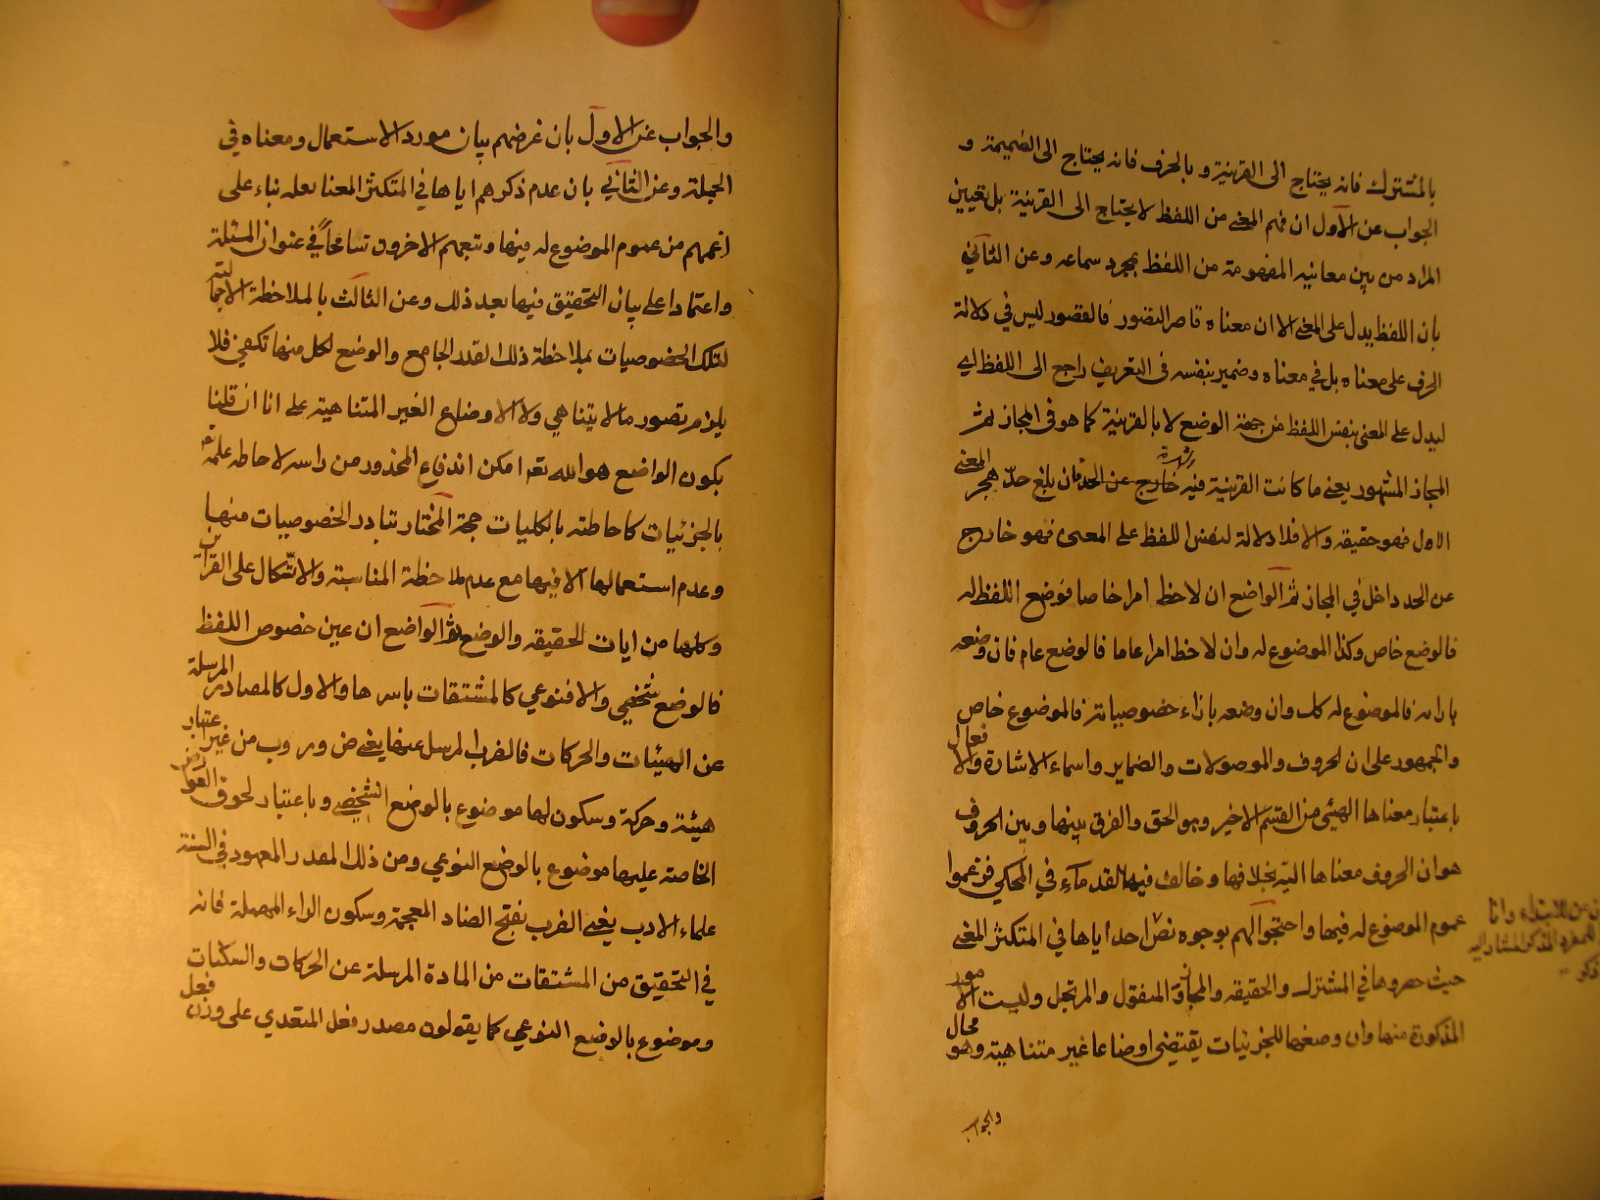 بالمشترك فانه يحتاج الى القرينة و بالحرف فانه يحتاج الى الضميمة و
الجواب عن الاول ان فهم المعنى من اللفظ لا يحتاج الى القرينة بل تعيين
المراد من بين معانيه المفهومة من اللفظ بمجرد سماعه وعن الثاني
بان اللفظ يدل على المعنى الا ان معناه قاصر التصور فالقصور ليس في دلالة
الحرف على معناه بل في معناه وضمير بنفسه في التعريف راجع الى اللفظ اي
ليدل على المعنى بنفس اللفظ من جهة الوضع لا بالقرينة كما هو في المجاز ثم
المجاز المشهور يعني ما كانت القرينة فيه شهرته خارج عن الحد فان بلغ حد هجر المعنى
الاول فهو حقيقه والا فلا دلالة لنفس اللفظ على المعنى فهو خارج
عن الحد داخل في المجاز ثم الواضع ان لاحظ امرا خاصا فوضع اللفظ له
فالوضع خاص وكذا الموضوع له وان لاحظ امرا عاما فالوضع عام فان وضعه
بازائه فالموضوع له كلي وان وضعه بازاء خصوصياته فالموضوع خاص
والجمهور على ان الحروف والموصولات والضماير واسماء الاشارة والافعال
باعتبار معناها الهيئي من القسم الاخير وهو الحق والفرق بينها وبين الحروف
هو ان الحروف معناها الية بخلافها و خالف فيها القدماء في المحكي فزعموا
عموم الموضوع له فيها واحتجوا لهم بوجوه احدا ياها في المتكثر المعنى
حيث حصروها في المشترك والحقيقه والمجاز و المنقول والمرتجل وليست الامور
المذكورة منها وان وضعها للجزئيات يقتضي اوضاعا غير متناهية وهو محال
والجواب
والجواب عن الاول بان غرضهم بيان مورد الاستعمال ومعناه في
الجملة وعن الثاني بان عدم ذكرهم اياها في المتكثر المعنا لعله بناء على
زعمهم من عموم الموضوع له فيها وتبعهم الاخرون تسامحاً في عنوان المسئلة
واعتمادا على بيان التحقيق فيها بعد ذلك وعن الثالث بالملاحظة الاجمالية
لتلك الخصوصيات بملاحظة ذلك القدر الجامع والوضع لكل منها تكفي فلا
يلزم تصور ما لا يتناهي ولا الاوضاع الغير المتناهية على انا ان قلنا
بكون الواضع هو الله تعا امكن اندفاع المحذور من راسه لاحاطه علمه تع
بالجزئيات كاحاطته بالكليات حجة المختار تبادر الخصوصيات منها
وعدم استعمالها الا فيها مع عدم ملاحظة المناسبة والاتكال على القرائن
وكلها من ايات الحقيقه والوضع ثم الواضع ان عين خصوص اللفظ
فالوضع شخصي والا فنوعي كالمشتقات باسرها والاول كالمصادر المرسلة
عن الهيئات والحركات فالضرب المرسل عنها يعني ض ور وب من غير اعتبار
هيئة وحركة وسكون لها موضوع بالوضع الشخصي و باعتبار لحوق العوارض
الخاصة عليها موضوع بالوضع النوعي ومن ذلك المصدر المعهود في السنة
علماء الادب يعني الضرب بفتح الضاد المعجمة وسكون الراء المهملة فانه
في التحقيق من المشتقات من المادة المرسلة عن الحركات والسكنات
وموضوع بالوضع النوعي كما يقولون مصدر فعل المتعدي على وزن فعل